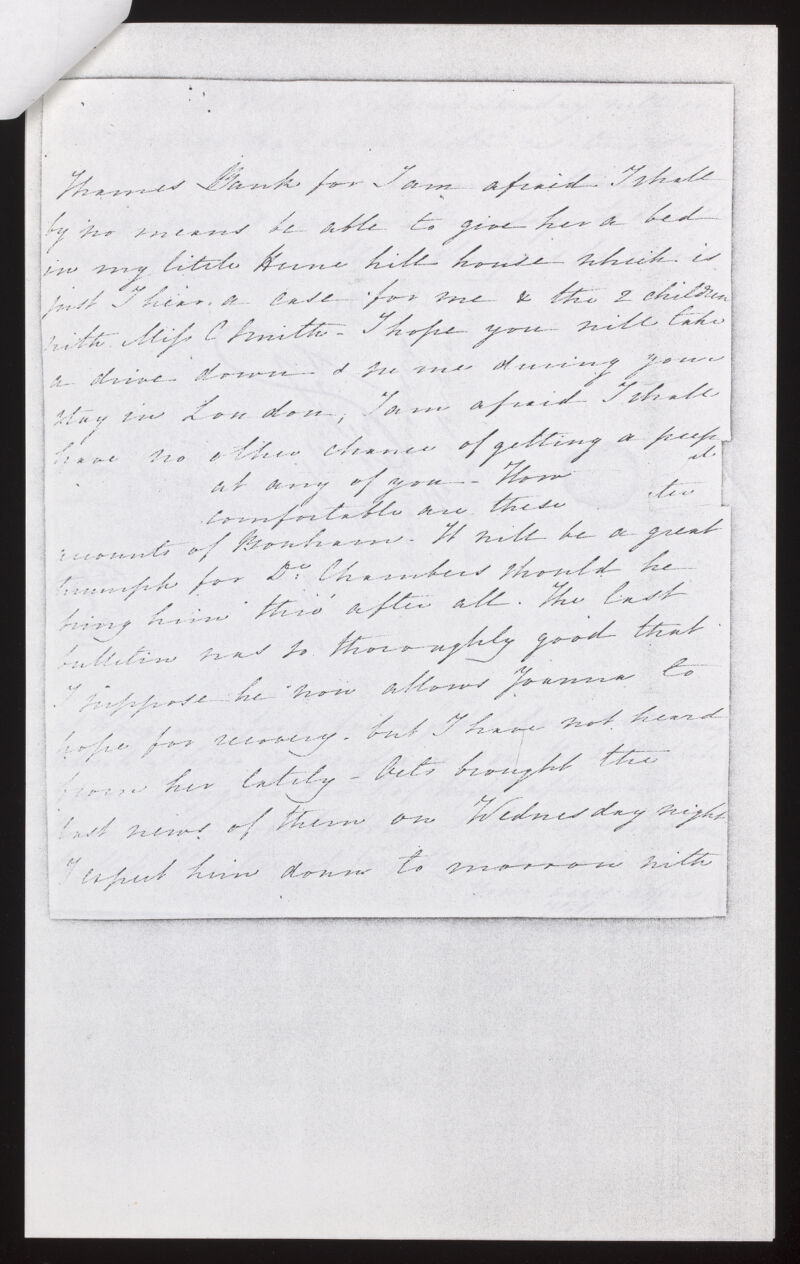 Thames Bank for I am afraid I shall
by no means be able to give her a bed
in my little Herne hill house which is
just I hear a case for me & the 2 children
with Miss C Smith - I hope you will take
a drive down & see me during your
stay in London, I am afraid I shall
have no other chance of getting a peep
at any of you - How
comfortable are these
accounts of Bonham. It will be a great
triumph for Dr Chambers should he
bring him thro' after all. The last
bulletin was so thoroughly good that
I suppose he now allows Joanna to
hope for recovery - but I have not heard
from her lately - Octs brought the
last news of them on Wednesday night
I expect him down to morrow with